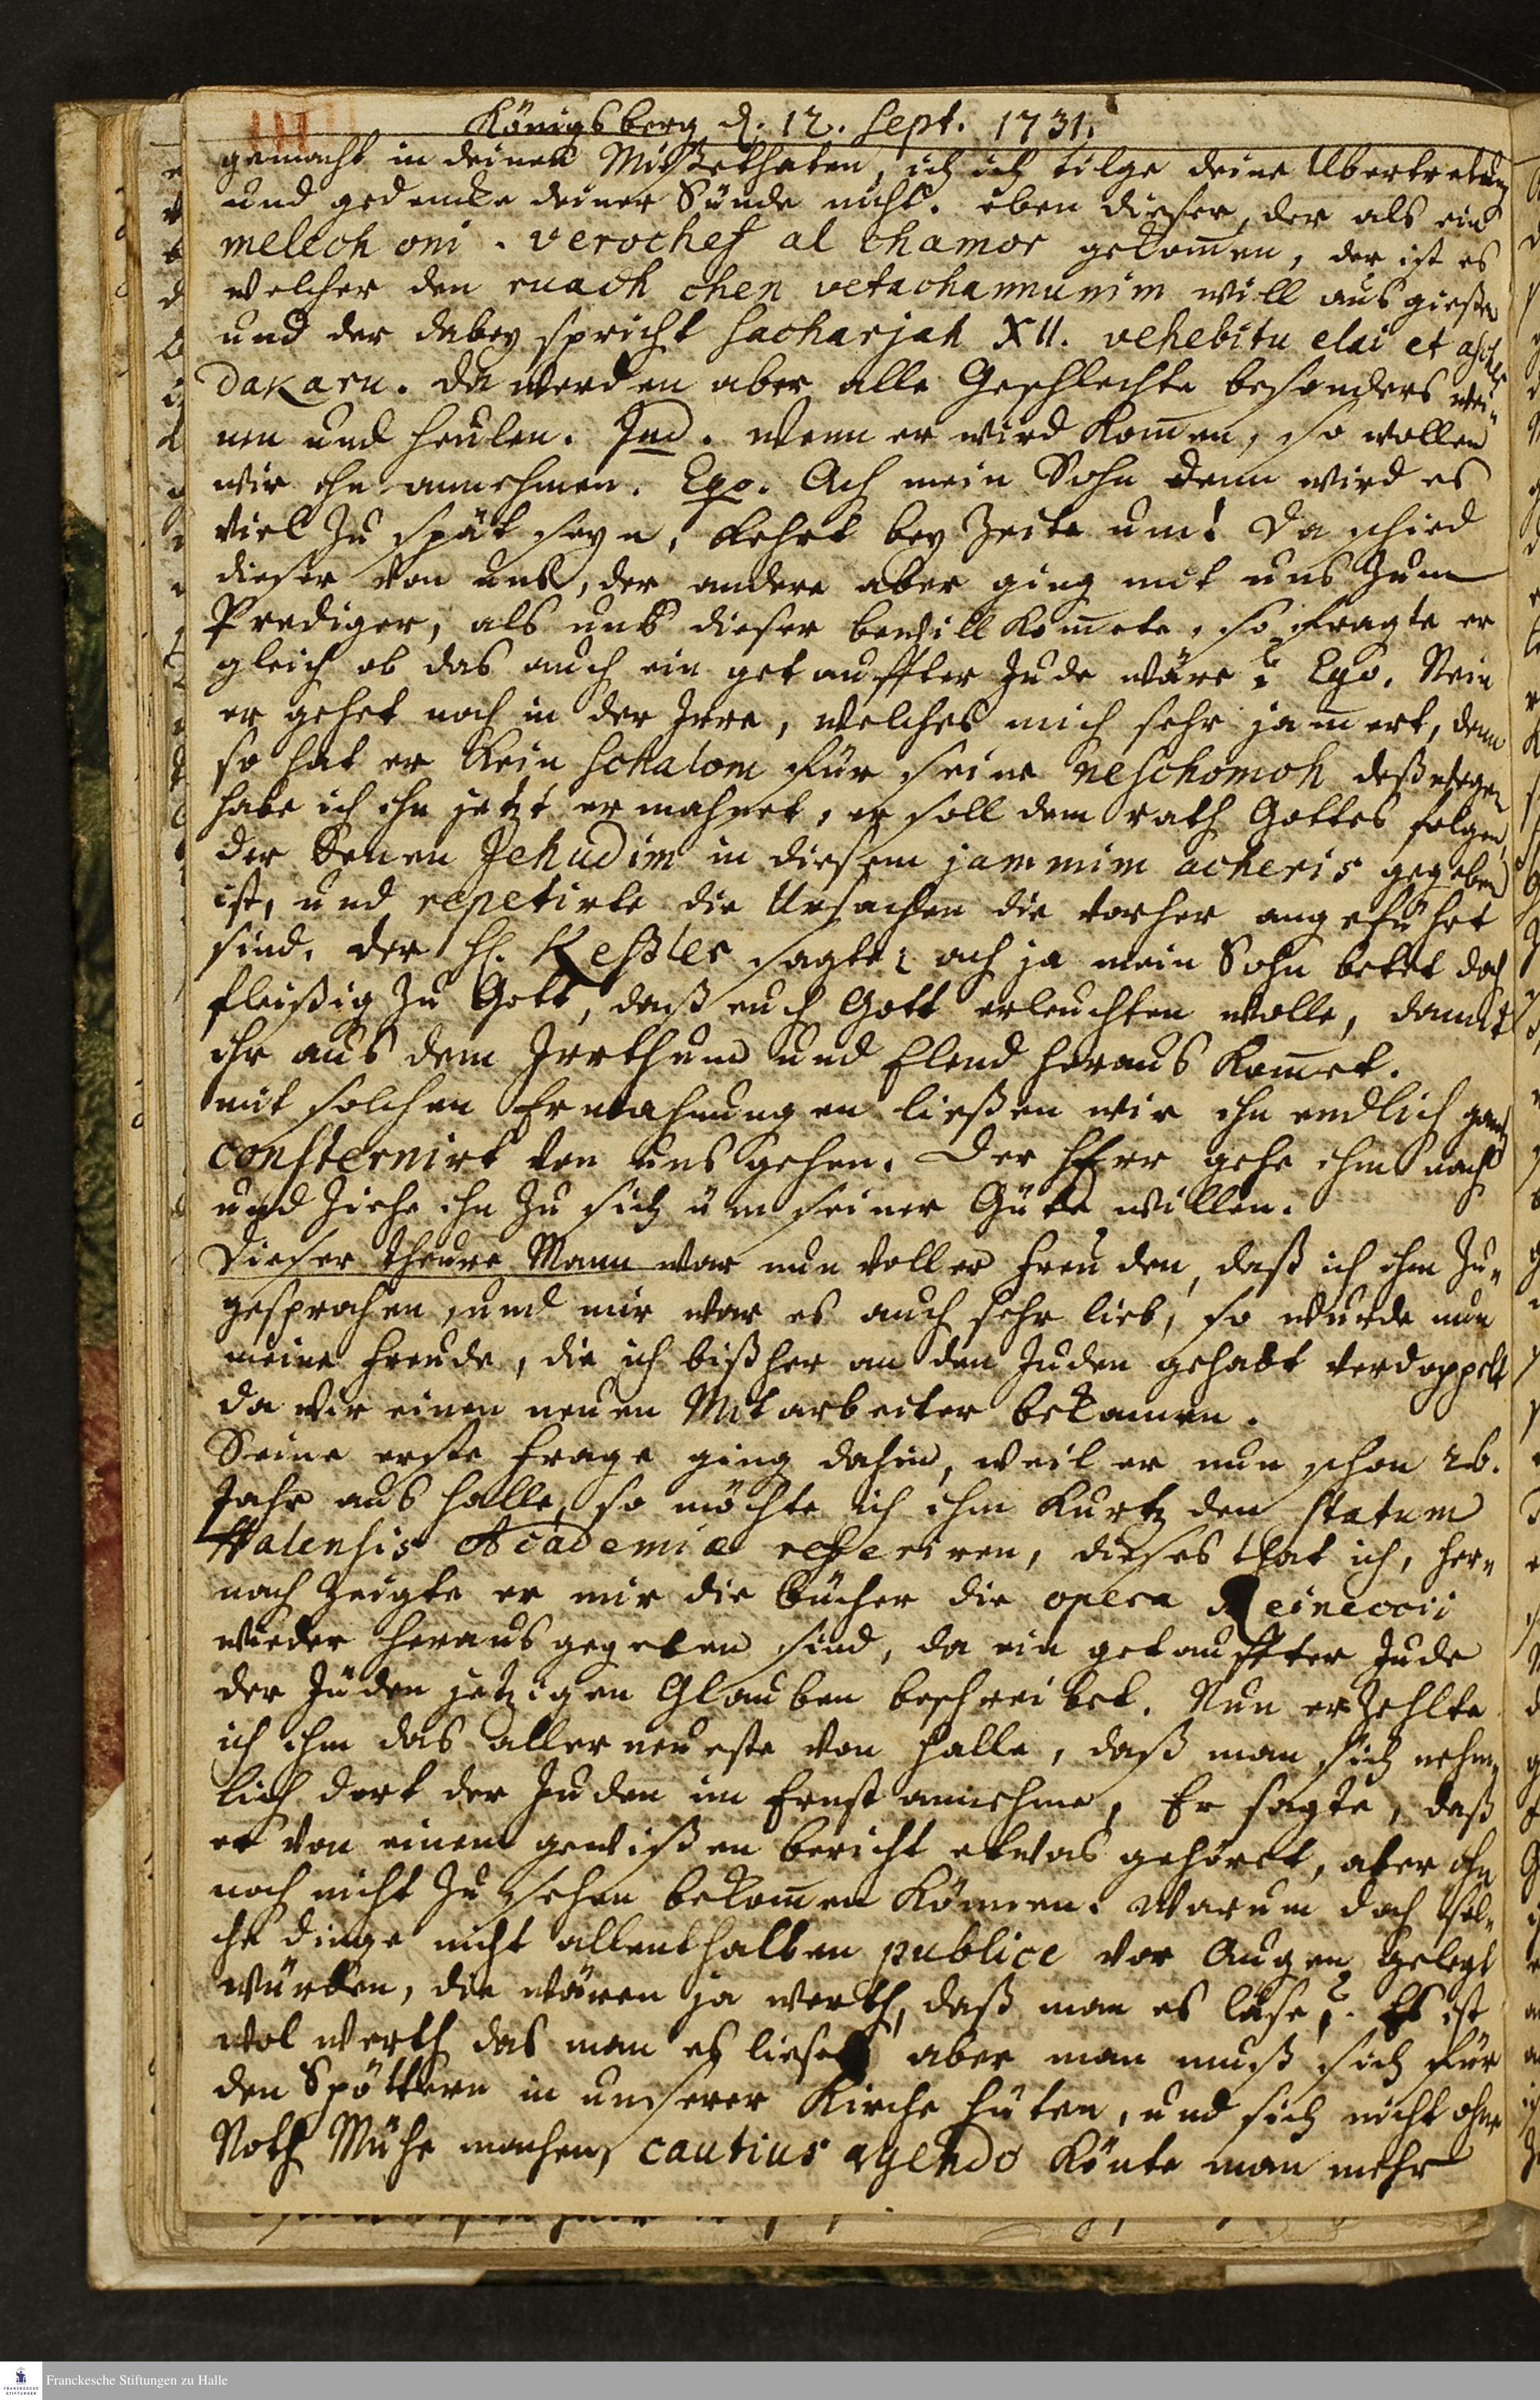 Königsberg d. 12. Sept. 1731.
gemacht in deinen Mißethaten, ich ich tilge deine Ubertretung
und gedencke deiner Sünde nicht. eben dieser, der als ein
melech oni. verochef al chamor gekom̄en, der ist es
welcher den ruach chen vetachannunim will ausgießen
und der dabey spricht Sacharjah XII. vehebitu elai et ascher
dakaru. da werden aber alle Geschlechte besonders wei-
nen und heulen. Jud. wenn er wird kom̄en, so wollen
wir ihn annehmen. Ego. Ach mein Sohn denn wird es
viel zu spät seyn, kehrt bey Zeite um! Da schied
dieser von uns, der andere aber ging mit uns zum
Prediger, als uns dieser bewillkom̄ete, so fragte er
gleich ob das auch ein getauffter Jude wäre? Ego. Nein
er gehet noch in der Irre, welches mich sehr jam̄ert, denn
so hat er kein schalom für seine neschomoh deßwegen
habe ich ihn jetzt ermahnet, er soll dem rath Gottes folgen,
der denen Jehudim in diesem jammim acheris gegeben
ist, und repetirte die Ursachen die vorher angeführt
sind. der H. Keßler sagte: ach ja mein Sohn betet doch
fleißig zu Gott, daß euch Gott erleuchten wolle, damit
ihr aus dem Irrthum und Elend heraus kom̄et.
mit solchen Ermahnungen ließen wir ihn endlich gantz
consternirt von uns gehen. Der HErr gehe ihm nach
und ziehe ihn zu sich üm seiner Güte willen.
Dieser theure Mann war nun voller Freuden, daß ich ihm zu-
gesprochen, und mir war es auch sehr lieb, so wurde nun
meine Freude, die ich bißher an den Juden gehabt verdoppelt
da wir einen neuen Mitarbeiter bekamen.
Seine erste Frage ging dahin, weil er nun schon 26.
Jahr aus Halle, so möchte ich ihm kurtz den statum
Halensis Academiæ referiren, dieses that ich, her-
nach zeigte er mir die bücher die opera Reineccii
wieder herausgegeben sind, da ein getauffter Jude
der Jüden jetzigen Glauben beschreibet. Nun erzehlte
ich ihm das allerneueste von Halle, daß man sich nehm-
lich dort der Juden im Ernst annehme, Er sagte, daß
er von einem gewißen bericht etwas gehöret, aber ihn
noch nicht zu sehen bekom̄en können. Warum doch sol-
che dinge nicht allenthalben publice vor Augen gelegt
würden, die wären ja werth, daß man es läse? Es ist
wol werth das man es liese aber man muß sich für
den Spöttern in unserer Kirche hüten, und sich nicht ohne
Noth Mühe machen, cautius agendo könte man mehr
Franckesche Stiftungen zu Halle